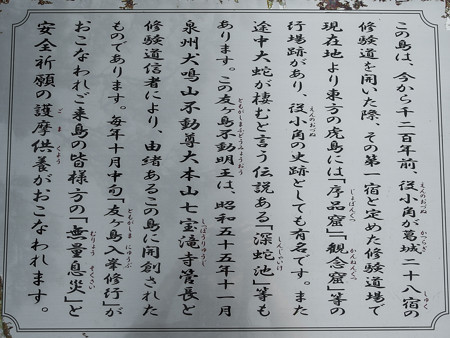 この島は、今から千二百年前、役小角が葛城二十八宿の
修験道を開いた際、その第一宿と定めた修験道場で
現在地より東方の虎島には「序品窟」「観念窟」等の
行場跡があり、役小角の史跡としても有名です。また
途中大蛇が棲むと言う伝説ある「深蛇池」等も
あります。この友ヶ島不動明王は、昭和五十五年十一月
泉州犬鳴山不動尊大本山七宝滝寺管長と
修験道信者により、由緒あるこの島に開創された
ものであります。毎年十月中旬「友ヶ島入峯修行」が
おこなわれご来島の皆様方の「無量息災」と
安全祈願の護摩供養がおこなわれます。